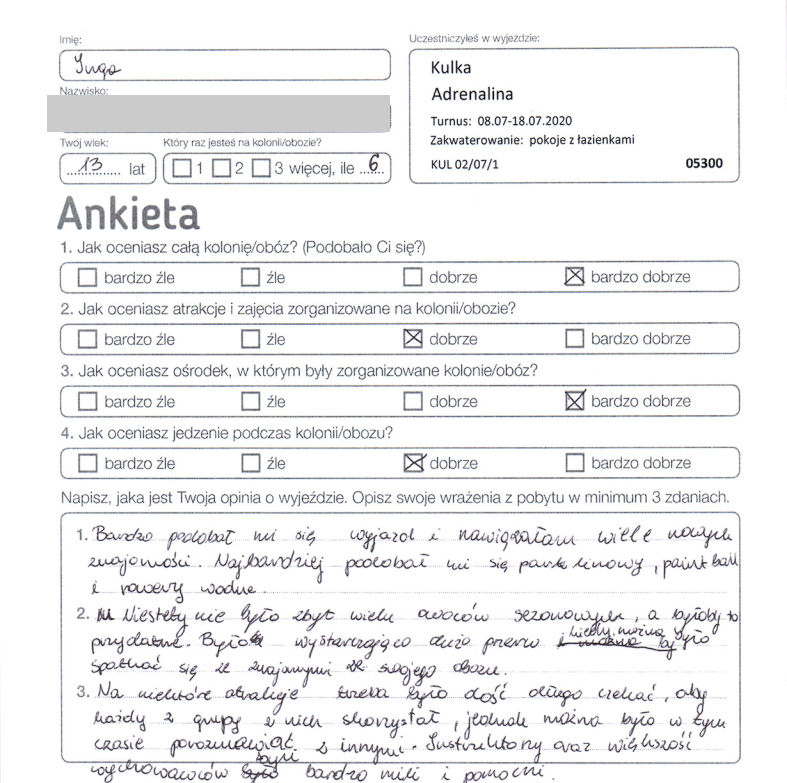 Imię:
Inga
Nazwisko:
Twój wiek:
13 lat
Który raz jesteś na kolonii/obozie?
1 2 3 więcej, ile 6
Uczestniczyłeś w wyjeździe:
Kulka
Adrenalina
Turnus: 08.07-18.07.2020
Zakwaterowanie: pokoje z łazienkami
KUL 02/07/1 05300
Ankieta
1. Jak oceniasz całą kolonię/obóz? (Podobało Ci się?)
bardzo źle źle dobrze bardzo dobrze
2. Jak oceniasz atrakcje i zajęcia zorganizowane na kolonii/obozie?
bardzo źle źle dobrze bardzo dobrze
3. Jak oceniasz ośrodek, w którym były zorganizowane kolonie/obóz?
bardzo źle źle dobrze bardzo dobrze
4. Jak oceniasz jedzenie podczas kolonii/obozu?
bardzo źle źle dobrze bardzo dobrze
Napisz, jaka jest Twoja opinia o wyjeździe. Opisz swoje wrażenia z pobytu w minimum 3 zdaniach.
1. Bardzo podobał mi się wyjazd i nawiązałam wiele nowych
znajomości. Najbardziej podobał mi się park linowy, paint ball
i rowery wodne.
2. Niestety nie było zbyt wielu owoców sezonowych, a byłoby to
przydatne. Było wystarczająco dużo przerw kiedy można było
spotkać się ze znajomymi ze swojego obozu.
3. Na niektóre atrakcje trzeba było dość długo czekać, aby
każdy z grupy z nich skorzystał, jednak można było w tym
czasie porozmawiać z innymi. Instruktorzy oraz większość
wychowawców byli bardzo mili i pomocni.